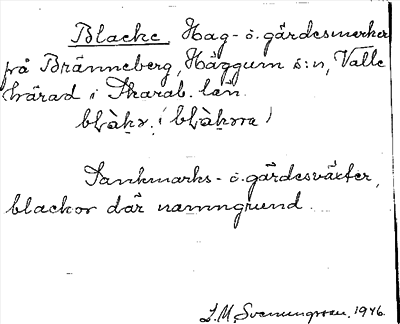 Blacke Hag- o. gärdesmarker
på Bränneberg, Häggum s:n, Valle
härad i Skarab. län.
blàkə. (blàkəra)
Sankmarks- o. gärdesväxter,
blackor där namngrund.
S. M. Svenungsson. 1946.